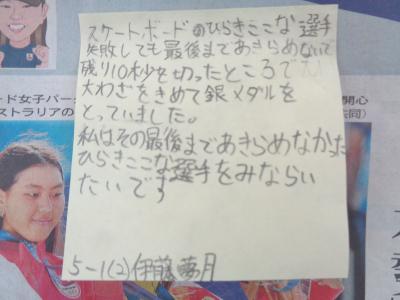 スケートボードのひらきここな選手
失敗しても最後まであきらめないで
残り10秒を切ったところで
大わざをきめて銀メダルを
とっていました。
私はその最後まであきらめなかった
ひらきここな選手をみならい
たいです
5-1(2)伊藤夢月
ード女子パー
ストラリアの
関心
共同)